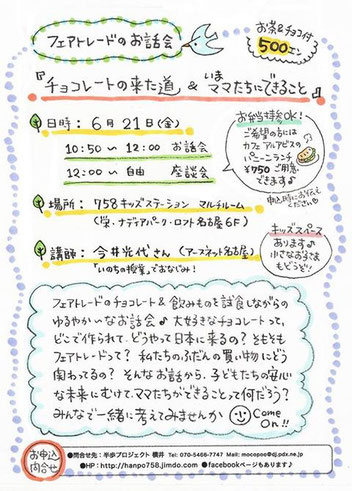 フェアトレードのお話会
お茶&チョコ付
500エン
『チョコレートの来た道』&いまママたちにできること』
日時:6月21日(金)
10:50 〜 12:00 お話会
12:00 〜 自由 座談会
お弁当持参OK!
ご希望の方には
カフェアルアビスの
パニーニランチ
¥750ご用意
できます♪
申込時にお伝え
ください
場所:758キッズステーション マルチルーム
(栄・ナディアパーク・ロフト名古屋6F)
キッズスペース
あります♪
小さなお子さまも
どうぞ!!
講師:今井光代さん(アースネット名古屋)
「いのちの授業」でおなじみ!
フェアトレードのチョコレート&飲みものを試食しながらの
ゆるやか〜なお話会♪大好きなチョコレートって、
どこで作られて、どうやって日本に来るの?そもそも
フェアトレードって?私たちのふだんの買い物にどう
関わってるの?そんなお話から、子どもたちの安心
な未来にむけて、ママたちができることって何だろう?
みんなで一緒に考えてみませんか
Come
On!!
お申込
問合せ
●問合せ先:半歩プロジェクト 横井 Tel: 070-5466-7747 Mail: mocopoo@dj.pdx.ne.jp
●HP:http://hanpo758.jimdo.com ●facebookページもあります♪